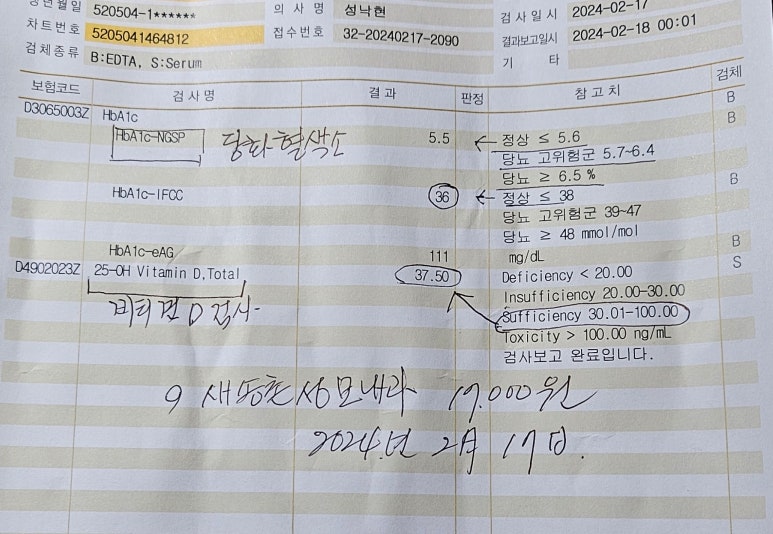 년월일 520504-1****** 의 사 명 성낙현 검 사 일 시 2024-02-17
차트번호 5205041464812 접수번호 32-20240217-2090 결과보고일시 2024-02-18 00:01
검체종류 B:EDTA, S:Serum 기 타
보험코드 검 사 명 결 과 판정 참 고 치 검체
D3065003Z HbA1c B
HbA1c-NGSP 당화혈색소 5.5 ← 정상 ≤ 5.6 B
당뇨 고위험군 5.7~6.4
당뇨 ≥ 6.5 %
HbA1c-IFCC 36 ← 정상 ≤ 38 B
당뇨 고위험군 39~47
당뇨 ≥ 48 mmol/mol
HbA1c-eAG 111 mg/dL B
D4902023Z 25-OH Vitamin D,Total 37.50 Deficiency < 20.00 S
Insufficiency 20.00-30.00
비타민 D 검사 Sufficiency 30.01-100.00
Toxicity > 100.00 ng/mL
검사보고 완료입니다.
성모내과 17,000원
2024년 2月 17日.